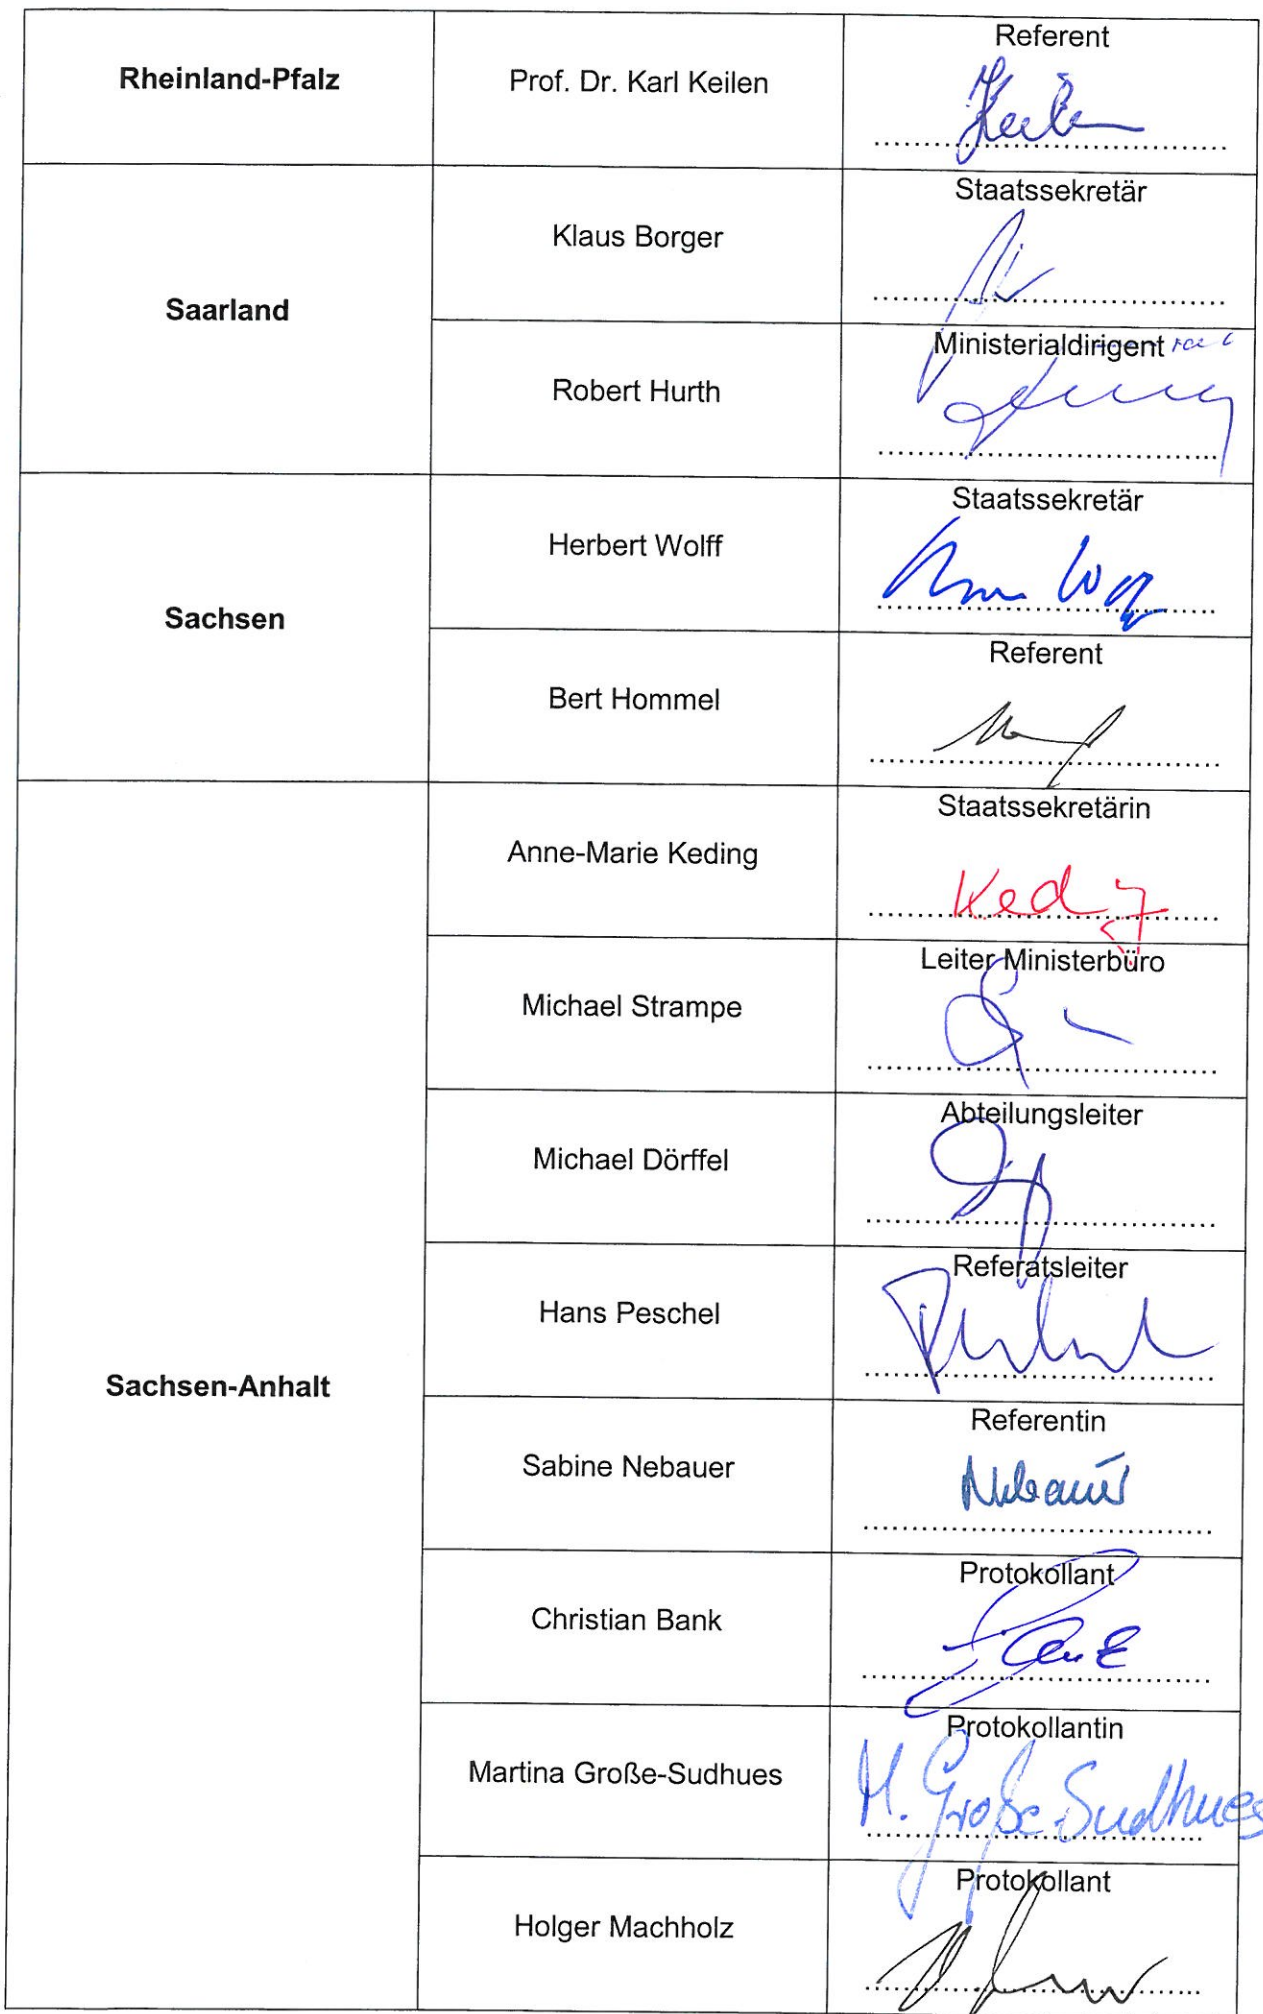 Rheinland-Pfalz
Prof. Dr. Karl Keilen
Referent
Saarland
Klaus Borger
Staatssekretär
Robert Hurth
Ministerialdirigent
Sachsen
Herbert Wolff
Staatssekretär
Bert Hommel
Referent
Sachsen-Anhalt
Anne-Marie Keding
Staatssekretärin
Keding
Michael Strampe
Leiter Ministerbüro
Michael Dörffel
Abteilungsleiter
Hans Peschel
Referatsleiter
Sabine Nebauer
Referentin
Nebauer
Christian Bank
Protokollant
Martina Große-Sudhues
Protokollantin
M. Große-Sudhues
Holger Machholz
Protokollant